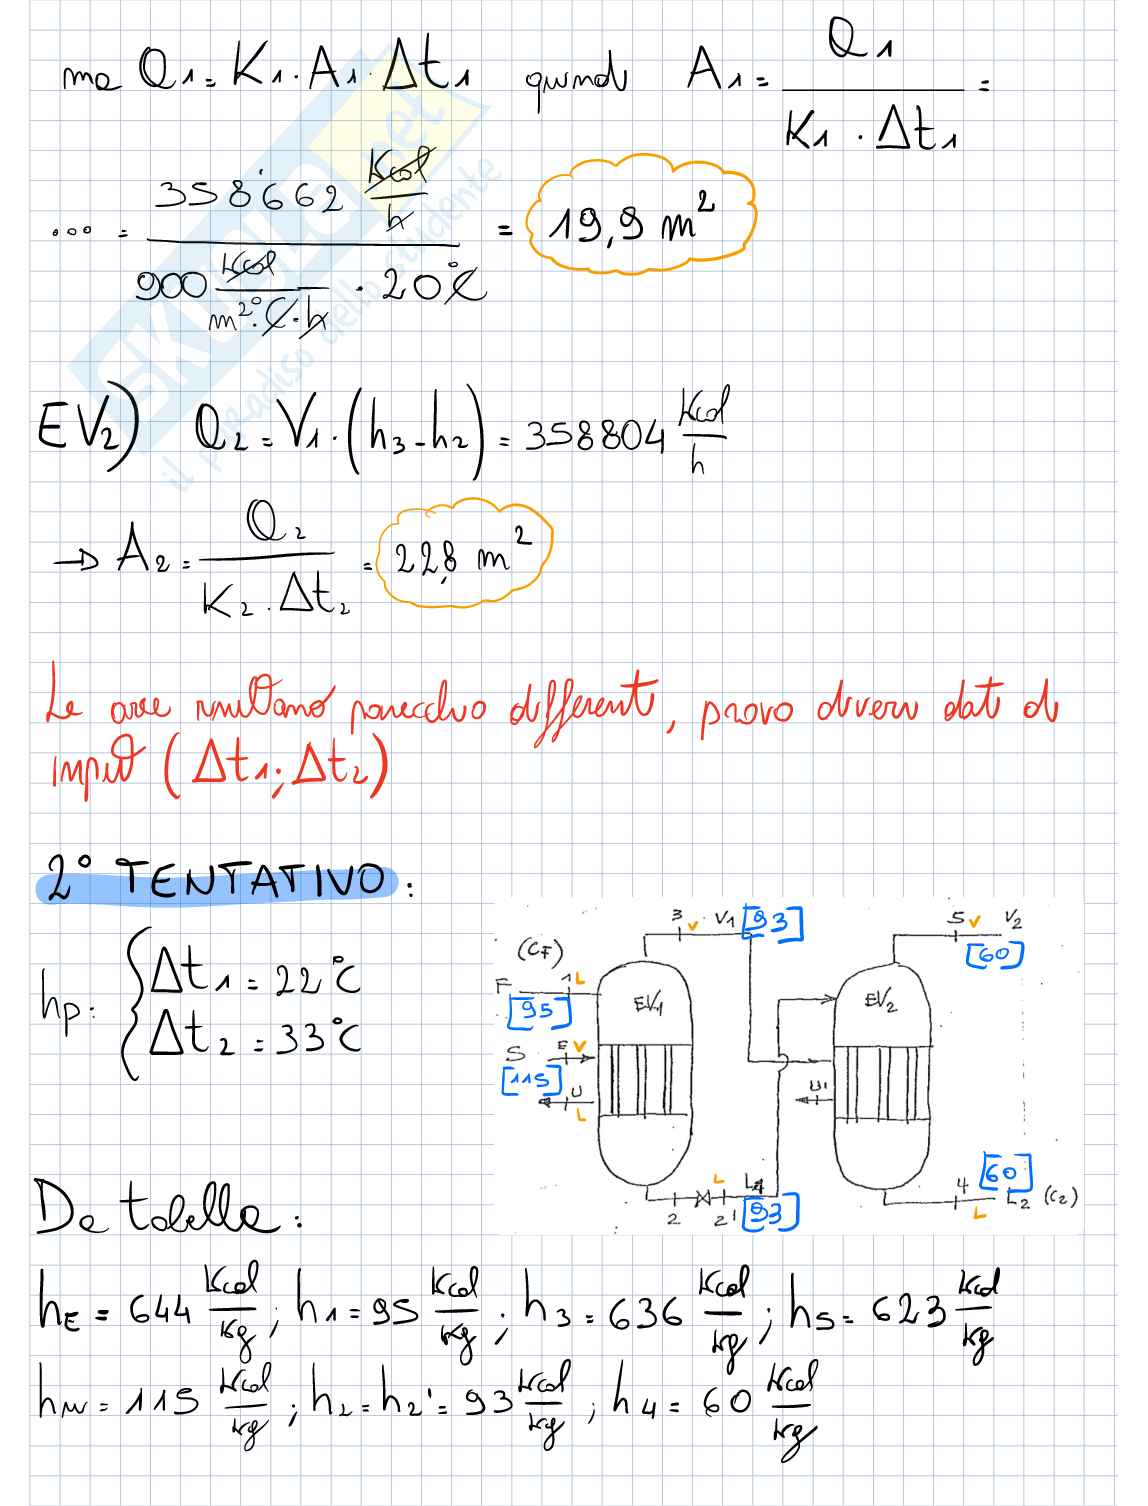 ma Q1 = K1 · A1 · Δt1 quindi A1 = Q1 / (K1 · Δt1) =
... = 358'662 Kcal/h / (900 Kcal/(m² · °C · h) · 20°C) = 19,9 m²
EV2) Q2 = V1 · (h3 - h2) = 358804 Kcal/h
→ A2 = Q2 / (K2 · Δt2) = 22,8 m²
Le aree risultano parecchio differenti, provo diversi dati di
input (Δt1; Δt2)
2° TENTATIVO:
hp: { Δt1 = 22°C
Δt2 = 33°C
3 V V1 [93]
5 V V2
[60]
(CF)
1 L
F
[95]
EV1
EV2
S E V
[115]
U
L
U'
2 2' L L1
[93]
4 [60]
L L2 (C2)
Da tabella:
hE = 644 Kcal/Kg ; h1 = 95 Kcal/Kg ; h3 = 636 Kcal/kg ; h5 = 623 Kcal/kg
hu = 115 Kcal/kg ; h2 = h2' = 93 Kcal/kg ; h4 = 60 Kcal/kg
SKUOLA.net
il paradiso dello studente